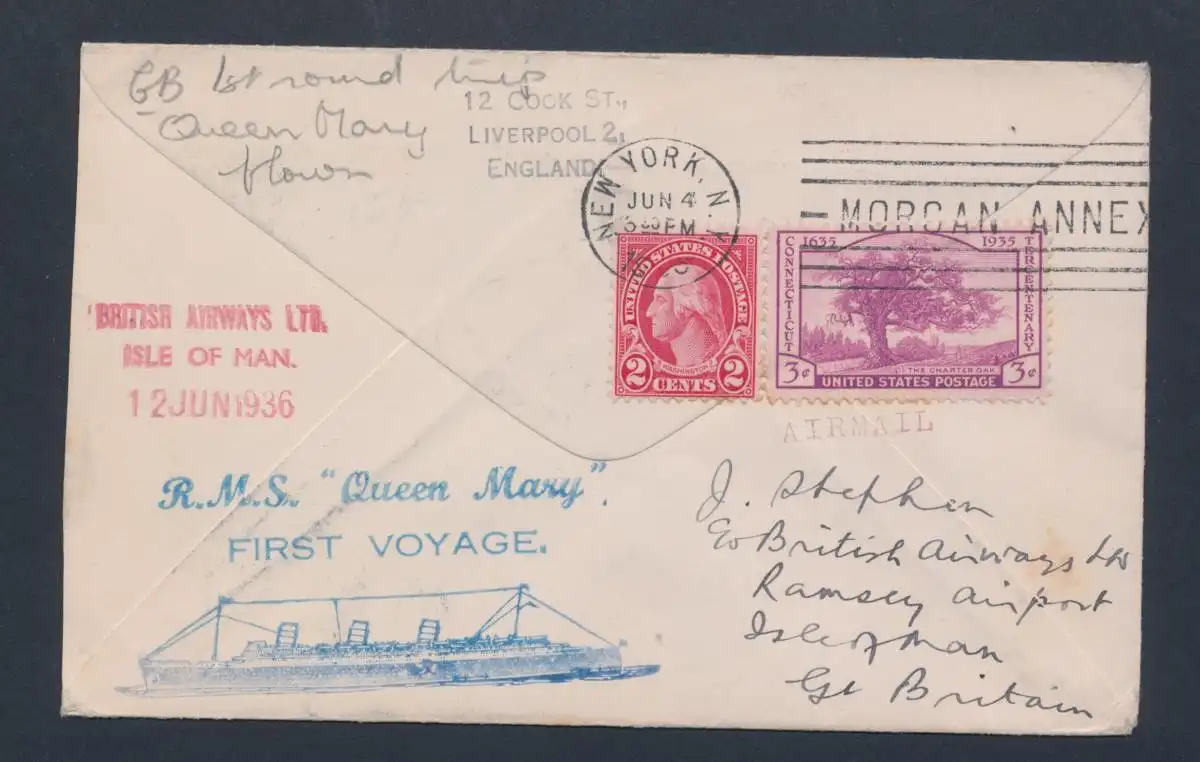 GB 1st round trip
Queen Mary
flown
12 COOK ST.,
LIVERPOOL 2,
ENGLAND
NEW YORK, N.Y.
JUN 4
3 30 PM
MORGAN ANNEX
UNITED STATES POSTAGE
WASHINGTON
2 CENTS 2
1635 1935
CONNECTICUT
TERCENTENARY
THE CHARTER OAK
3¢ UNITED STATES POSTAGE 3¢
AIRMAIL
BRITISH AIRWAYS LTD.
ISLE OF MAN.
12 JUN 1936
R.M.S. "Queen Mary".
FIRST VOYAGE.
J. Stephen
c/o British Airways Ltd
Ramsey Airport
Isle of Man
Gt Britain